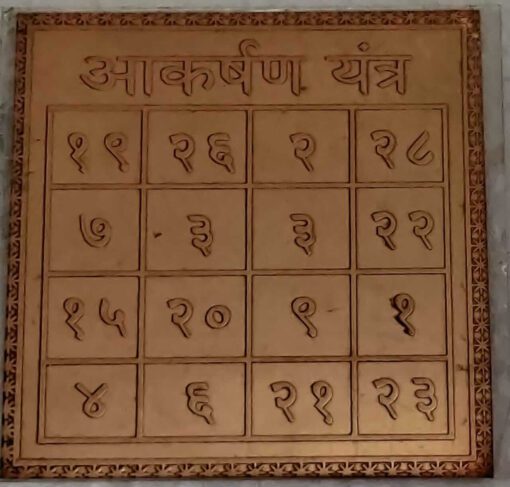 आकर्षण यंत्र
१९ २६ २ २८
७ ३ ३ २२
१५ २० ९ १
४ ६ २१ २३